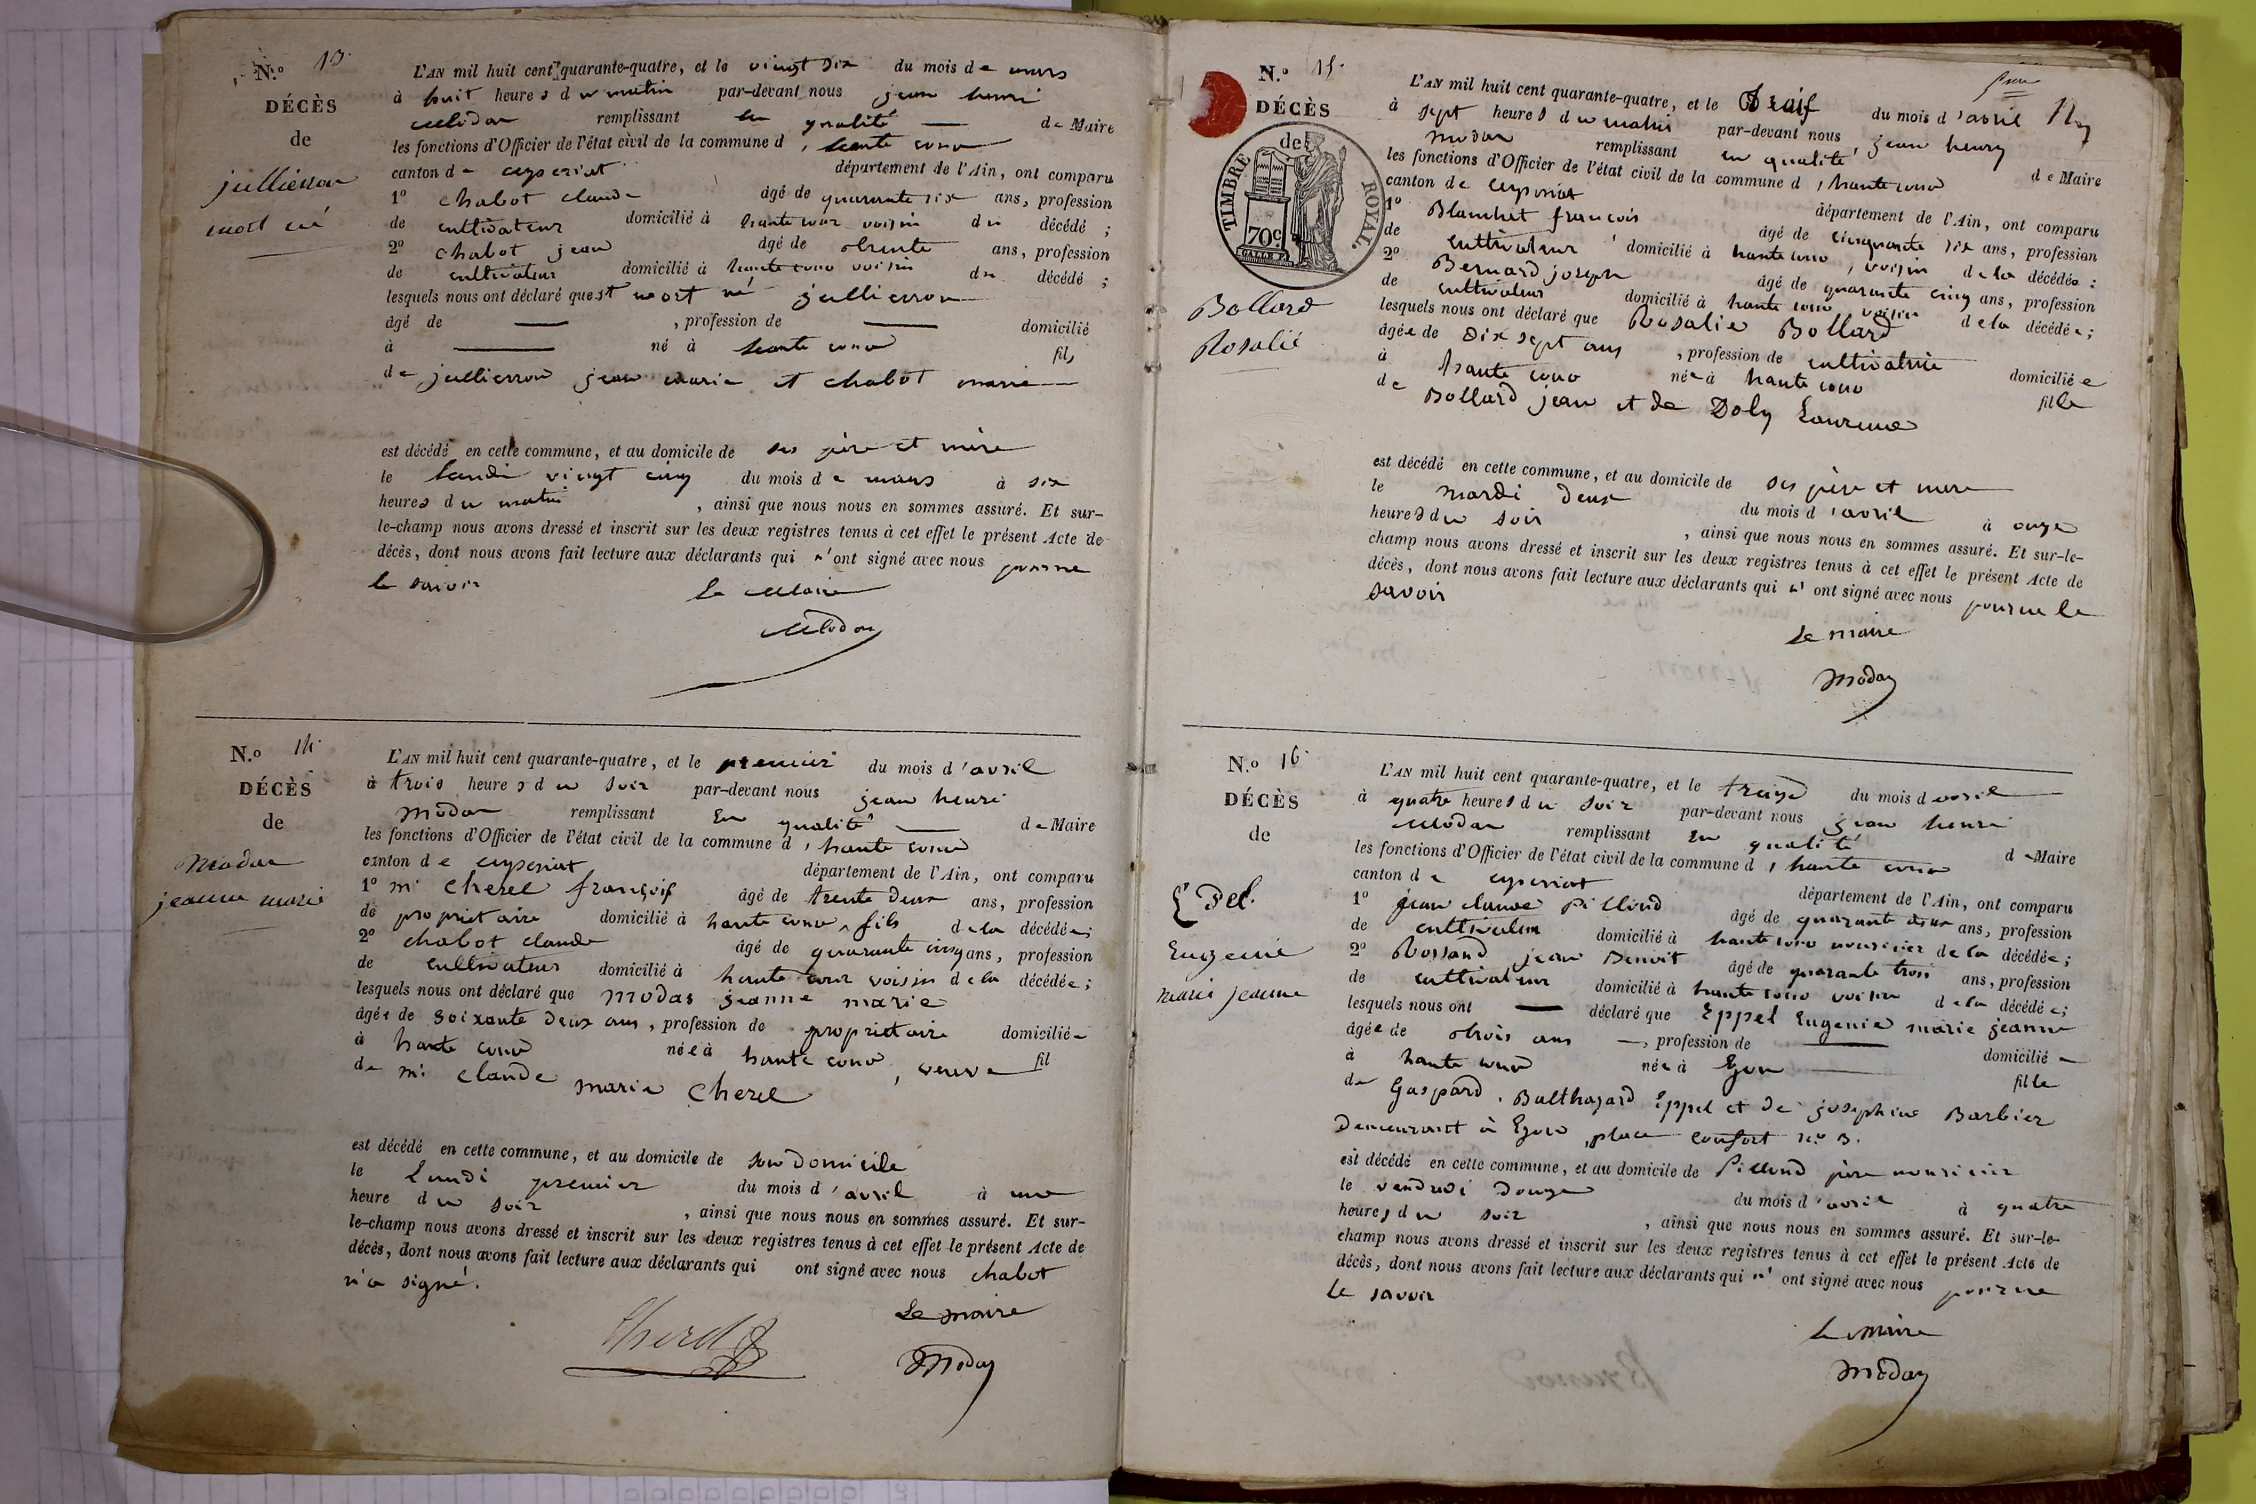 N.o 13.
DÉCÈS
de
jullierron
mort né
L'AN mil huit cent quarante-quatre, et le vingt six du mois de mars
à huit heures du matin par-devant nous jean henri
Modas remplissant en qualité de Maire
les fonctions d'Officier de l'état civil de la commune d'haute cour
canton de ceyseriat département de l'Ain, ont comparu
1o chabot claude âgé de quarante six ans, profession
de cultivateur domicilié à haute cour voisin du décédé ;
2o chabot jean âgé de trente ans, profession
de cultivateur domicilié à haute cour voisin du décédé ;
lesquels nous ont déclaré que mort né jullierron
âgé de , profession de domicilié
à né à haute cour fils
de jullierron jean marie et chabot marie
est décédé en cette commune, et au domicile de ses père et mère
le lundi vingt cinq du mois de mars à six
heures du matin , ainsi que nous nous en sommes assuré. Et sur-
le-champ nous avons dressé et inscrit sur les deux registres tenus à cet effet le présent Acte de
décès, dont nous avons fait lecture aux déclarants qui n'ont signé avec nous pour ne
le savoir
Le Maire
Modas
N.o 14.
DÉCÈS
de
Modas
jeanne marie
L'AN mil huit cent quarante-quatre, et le premier du mois d'avril
à trois heures du soir par-devant nous jean henri
Modas remplissant En qualité de Maire
les fonctions d'Officier de l'état civil de la commune d'haute cour
canton de ceyseriat département de l'Ain, ont comparu
1o mr cherel françois âgé de trente deux ans, profession
de proprietaire domicilié à haute cour, fils de la décédée;
2o chabot claude âgé de quarante cinq ans, profession
de cultivateur domicilié à haute cour voisin de la décédée;
lesquels nous ont déclaré que modas jeanne marie
âgée de soixante deux ans, profession de proprietaire domiciliée
à haute cour née à haute cour, veuve fil
de mr claude marie cherel
est décédé en cette commune, et au domicile de son domicile
le Lundi premier du mois d'avril à une
heure du soir , ainsi que nous nous en sommes assuré. Et sur-
le-champ nous avons dressé et inscrit sur les deux registres tenus à cet effet le présent Acte de
décès, dont nous avons fait lecture aux déclarants qui ont signé avec nous chabot
n'a signé.
Le maire
Cherel
Modas
N.o 15.
DÉCÈS
de
TIMBRE ROYAL.
70c
Bollard
Rosalie
L'AN mil huit cent quarante-quatre, et le trois du mois d'avril
à sept heures du matin par-devant nous, jean henry
modas remplissant en qualité de Maire
les fonctions d'Officier de l'état civil de la commune d'haute cour
canton de ceyseriat département de l'Ain, ont comparu
1o Blanchet françois âgé de cinquante six ans, profession
de cultivateur domicilié à haute cour, voisin de la décédée :
2o Bernard joseph âgé de quarante cinq ans, profession
de cultivateur domicilié à haute cour voisin de la décédée ;
lesquels nous ont déclaré que Rosalie Bollard
âgée de dix sept ans , profession de cultivatrice
à haute cour née à haute cour domiciliée
de Bollard jean et de Doly Laurence fille
est décédé en cette commune, et au domicile de ses père et mère
le mardi deux du mois d'avril à onze
heures du soir , ainsi que nous nous en sommes assuré. Et sur-le-
champ nous avons dressé et inscrit sur les deux registres tenus à cet effet le présent Acte de
décès, dont nous avons fait lecture aux déclarants qui n'ont signé avec nous pour ne le
savoir
Le maire
Modas
N.o 16.
DÉCÈS
de
Eugenie
marie jeanne
L'AN mil huit cent quarante-quatre, et le treize du mois d'avril
à quatre heures du soir par-devant nous jean henri
Modas remplissant en qualité de Maire
les fonctions d'Officier de l'état civil de la commune d'haute cour
canton de ceyseriat département de l'Ain, ont comparu
1o jean claude Pilloud âgé de quarante deux ans, profession
de cultivateur domicilié à haute cour nouricier de la décédée;
2o Rossand jean Benoit âgé de quarante trois ans, profession
de cultivateur domicilié à haute cour voisin de la décédée;
lesquels nous ont déclaré que Eppel Eugenie marie jeanne
âgée de trois ans , profession de domiciliée
à haute cour née à Lyon fille
de Gaspard, Balthazard Eppel et de josephine Barbier
Demeurant à Lyon, place confort no 13.
est décédé en cette commune, et au domicile de Pilloud père nouricier
le vendredi douze du mois d'avril à quatre
heures du soir , ainsi que nous nous en sommes assuré. Et sur-le-
champ nous avons dressé et inscrit sur les deux registres tenus à cet effet le présent Acte de
décès, dont nous avons fait lecture aux déclarants qui n'ont signé avec nous pour ne
le savoir
Le Maire
Modas